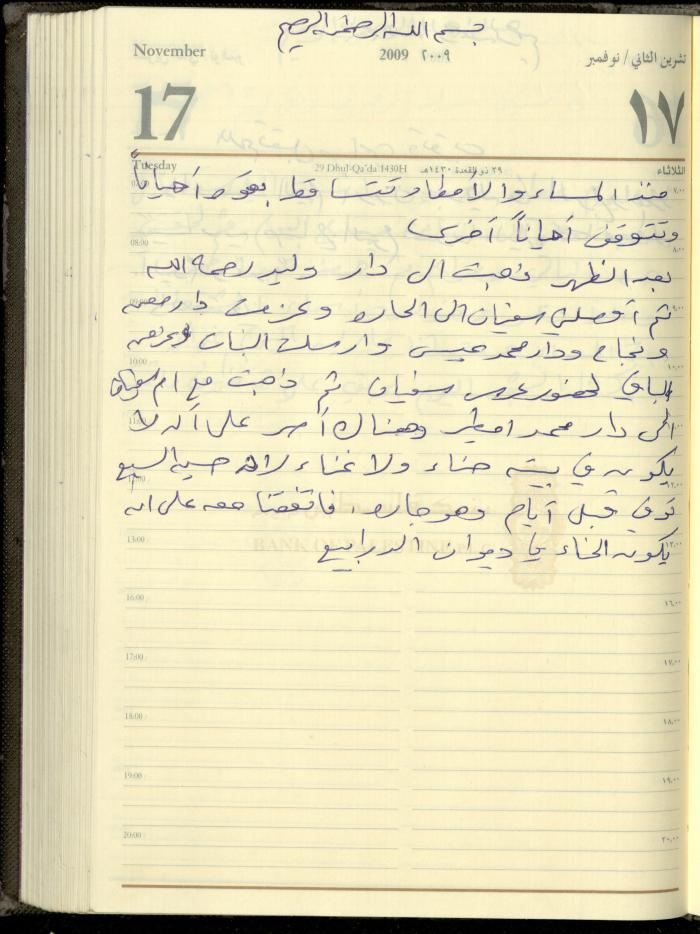 بسم الله الرحمن الرحيم
November 2009 ٢٠٠٩ تشرين الثاني / نوفمبر
17 ١٧
Tuesday 29 Dhul-Qa'da 1430H ٢٩ ذو القعدة ١٤٣٠هـ الثلاثاء
منذ المساء والأمطار تتساقط بقوة أحياناً
وتتوقف أحياناً أخرى
بعد الظهر ذهبت الى دار وليد رحمه الله
ثم أوصلني سفيان الى الحارة وعزمت دار
ونجاح ودار محمد عيسى وارسلت البنات
الباقي لحضور عرس سفيان ثم ذهبت مع ام سفيان
الى دار محمد امطير وهناك أصر على أن لا
يكون في بيته حناء ولا غناء لان السبع
توفي قبل أيام وهو جاره، فاتفقنا معه على ان
يكون الحناء في ديوان الدرابيع
08:00
10:00
13:00
16:00 ١٦,٠٠
17:00 ١٧,٠٠
18:00 ١٨,٠٠
19:00 ١٩,٠٠
20:00 ٢٠,٠٠